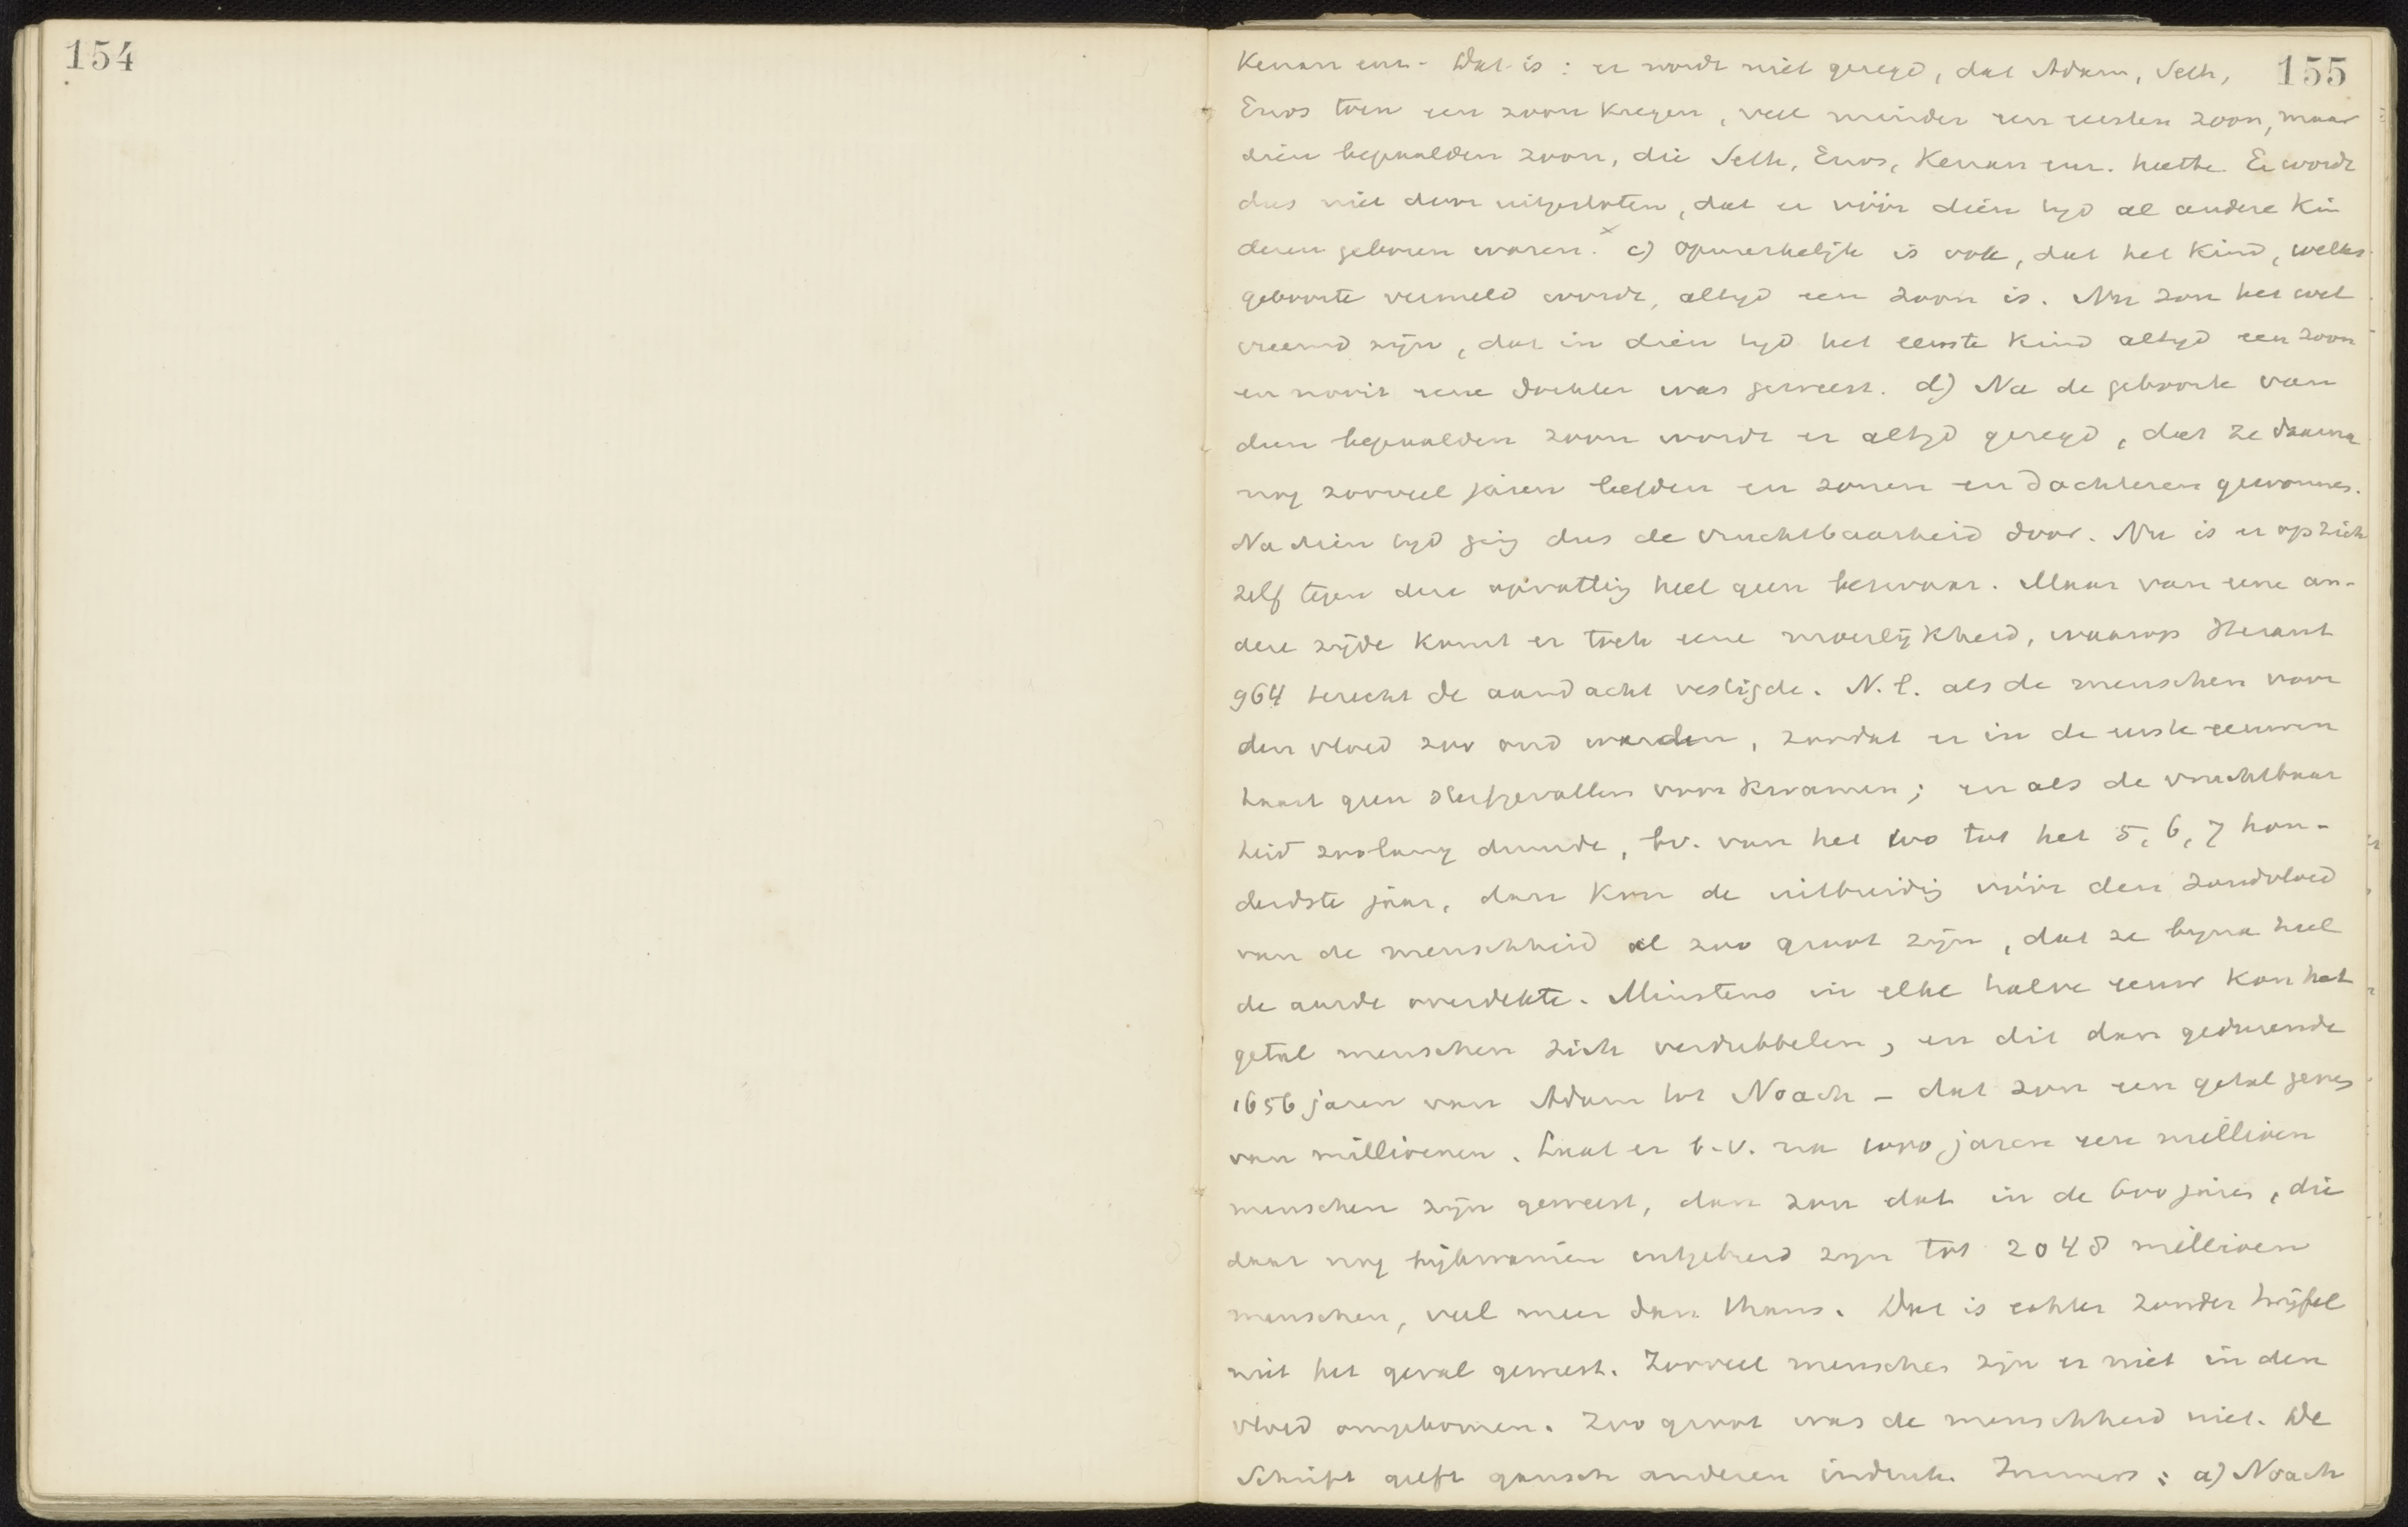 154
155
Kenan enz. Dat is: er wordt niet gezegd, dat Adam, Seth,
Enos toen een zoon kregen, veel minder een eersten zoon, maar
dien bepaalden zoon, die Seth, Enos, Kenan enz. heette. Er wordt
dus niet door uitgesloten, dat er vóór dien tyd al andere kin
deren geboren waren. x c) Opmerkelijk is ook, dat het kind, welks
geboorte vermeld wordt, altyd een zoon is. Nu zou het wel
vreemd zijn, dat in dien tyd het eerste kind altyd een zoon
en nooit eene dochter was geweest. d) Na de geboorte van
dien bepaalden zoon wordt er altyd gezegd, dat ze daarna
nog zooveel jaren leefden en zonen en dochteren gewonnen.
Na dien tyd ging dus de vruchtbaarheid door. Nu is er op zich
zelf tegen deze opvatting heel geen bezwaar. Maar van eene an-
dere zijde komt er toch eene moeilijkheid, waarop
964 terecht de aandacht vestigde. N.l. als de menschen voor
den vloed zoo oud werden, zoodat er in de eerste eeuwen
haast geen sterfgevallen voorkwamen; en als de vruchtbaar
heid zoolang duurde, bv. van het 100 tot het 5, 6, 7 hon-
derdste jaar, dan kon de uitbreiding vóór den zondvloed
van de menschheid al zoo groot zijn, dat ze byna heel
de aarde overdekte. Minstens in elke halve eeuw kon het
getal menschen zich verdubbelen, en dit dan gedurende
1656 jaren van Adam tot Noach - dat zou een getal geven
van millioenen. Laat er b.v. na 1000 jaren een millioen
menschen zijn geweest, dan zou dat in de 600 jaren, die
daar nog bijkwamen uitgebreid zijn tot 2048 millioen
menschen, veel meer dan thans. Dat is echter zonder twijfel
niet het geval geweest. Zooveel menschen zijn er niet in den
vloed omgekomen. Zoo groot was de menschheid niet. De
Schrift geeft gansch anderen indruk. Immers: a) Noach